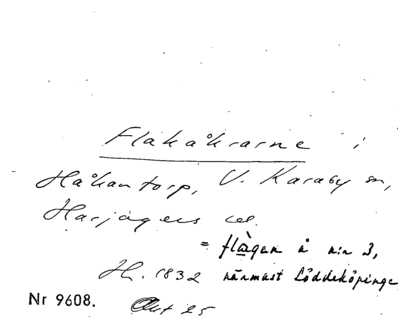 Flakåkrarne i
Håkantorp, V. Karaby sn,
Harjagers
= flàgen å n:r 3,
H. 1832 närmast Löddeköpinge
Nr 9608.